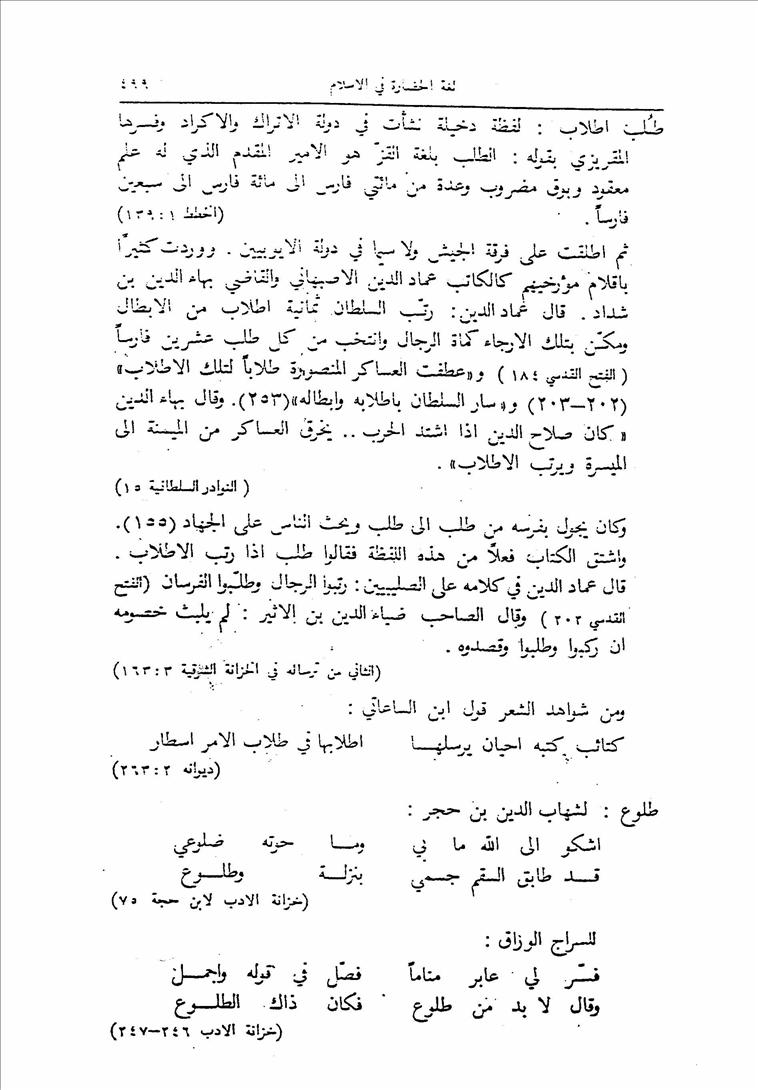 لغة الحضارة في الاسلام ٤٩٩
طُلب اطلاب : لفظة دخيلة نشأت في دولة الاتراك والاكراد وفسرها
المقريزي بقوله : الطلب بلغة الغزّ هو الامير المقدم الذي له علم
معقود وبوق مضروب وعدة من مائتي فارس الى مائة فارس الى سبعين
فارساً . (الخطط ١ : ١٣٩)
ثم اطلقت على فرقة الجيش ولا سيما في دولة الايوبيين . ووردت كثيراً
باقلام مؤرخيهم كالكاتب عماد الدين الاصبهاني والقاضي بهاء الدين بن
شداد . قال عماد الدين : رتّب السلطان ثمانية اطلاب من الابطال
ومكّن بتلك الارجاء كماة الرجال وانتخب من كل طلب عشرين فارساً
( الفتح القدسي ١٨٤ ) و«عطفت العساكر المنصورة طلاباً لتلك الاطلاب»
(٢٠٢–٢٠٣) و«سار السلطان باطلابه وابطاله»(٢٥٣). وقال بهاء الدين
« كان صلاح الدين اذا اشتد الحرب .. يخرق العساكر من الميمنة الى
الميسرة ويرتب الاطلاب» .
( النوادر السلطانية ١٥ )
وكان يجول بفرسه من طلب الى طلب ويحث الناس على الجهاد (١٥٥).
واشتق الكتاب فعلاً من هذه اللفظة فقالوا طلب اذا رتب الاطلاب .
قال عماد الدين في كلامه على الصليبيين : رتبوا الرجال وطلّبوا الفرسان (الفتح
القدسي ٢٠٢ ) وقال الصاحب ضياء الدين بن الاثير : لم يلبث خصومه
ان ركبوا وطلبوا وقصدوه .
(الثاني من ترسله في الخزانة الشرقية ٣ : ١٦٣)
ومن شواهد الشعر قول ابن الساعاتي :
كتائب كتبه احيان يرسلهـا اطلابها في طلاب الامر اسطار
(ديوانه ٢ : ٢٦٣)
طلوع : لشهاب الدين بن حجر :
اشكو الى الله ما بي ومـا حوته ضلوعي
قـد طابق السقم جسمي بنزلـة وطلـوع
(خزانة الادب لابن حجة ٧٥ )
للسراج الوزاق :
فسّر لي عابر مناماً فصّل في قوله واجمـل
وقال لا بد من طلوع فكان ذاك الطلـوع
(خزانة الادب ٢٤٦–٢٤٧)